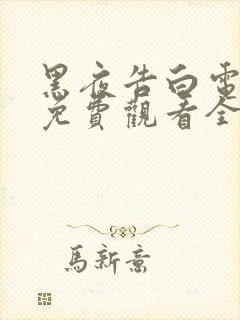 黑夜告白電
免費觀看全
馬新意